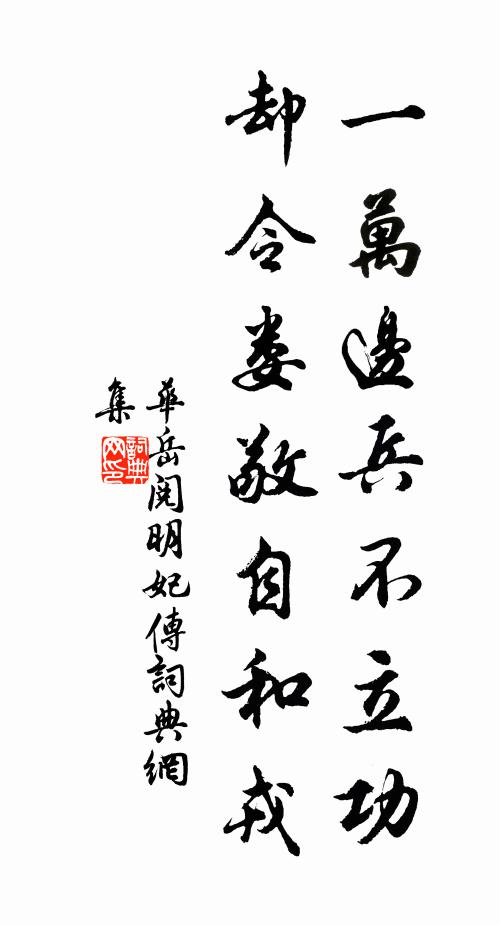 一萬邊兵不立功
却令娄敬自和戎
華岳閱明妃傳詞典網
集
詞典
网印